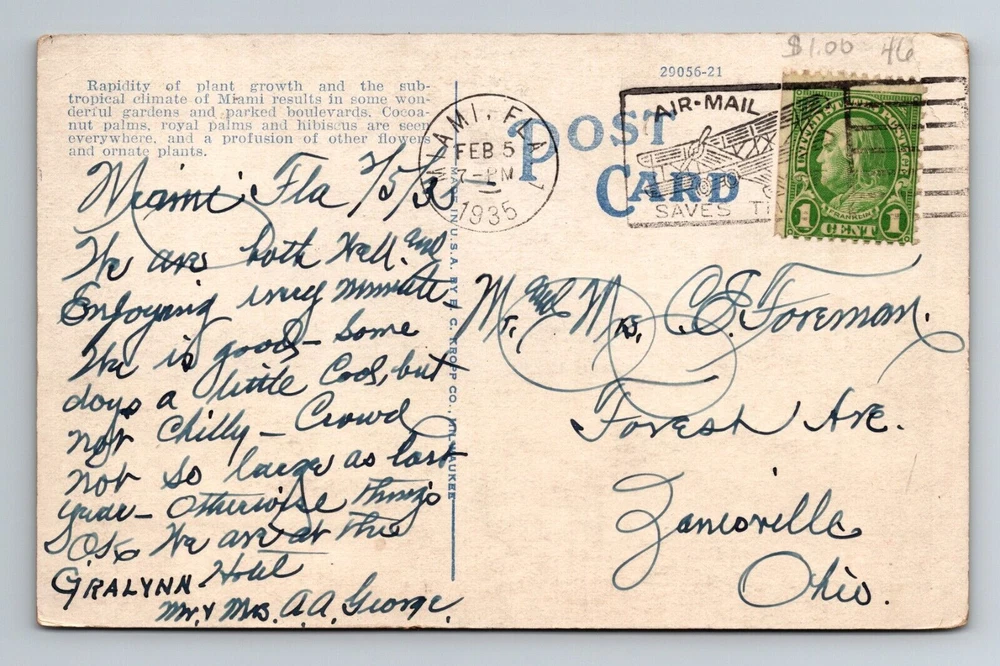 $1.00 46
Rapidity of plant growth and the sub-
tropical climate of Miami results in some won-
derful gardens and parked boulevards. Cocoa-
nut palms, royal palms and hibiscus are seen
everywhere, and a profusion of other flowers
and ornate plants.
29056-21
POST
CARD
MIAMI, FLA.
FEB 5
7-PM
1935
AIR-MAIL
SAVES
UNITED STATES POSTAGE
FRANKLIN
1 CENT 1
MADE IN U.S.A. BY E. C. KROPP CO., MILWAUKEE
Miami Fla 2/5/35
We are both Well. and
Enjoying every minute
We is good - Some
days a little Cool, but
not Chilly - Crowd
not so large as last
year - Otherwise things
O.K. We are at The
GRALYNN - Hotel
Mr. & Mrs. A.A. George.
Mr. and Mrs. C.E. Foreman.
Forest Ave.
Zanesville
Ohio.